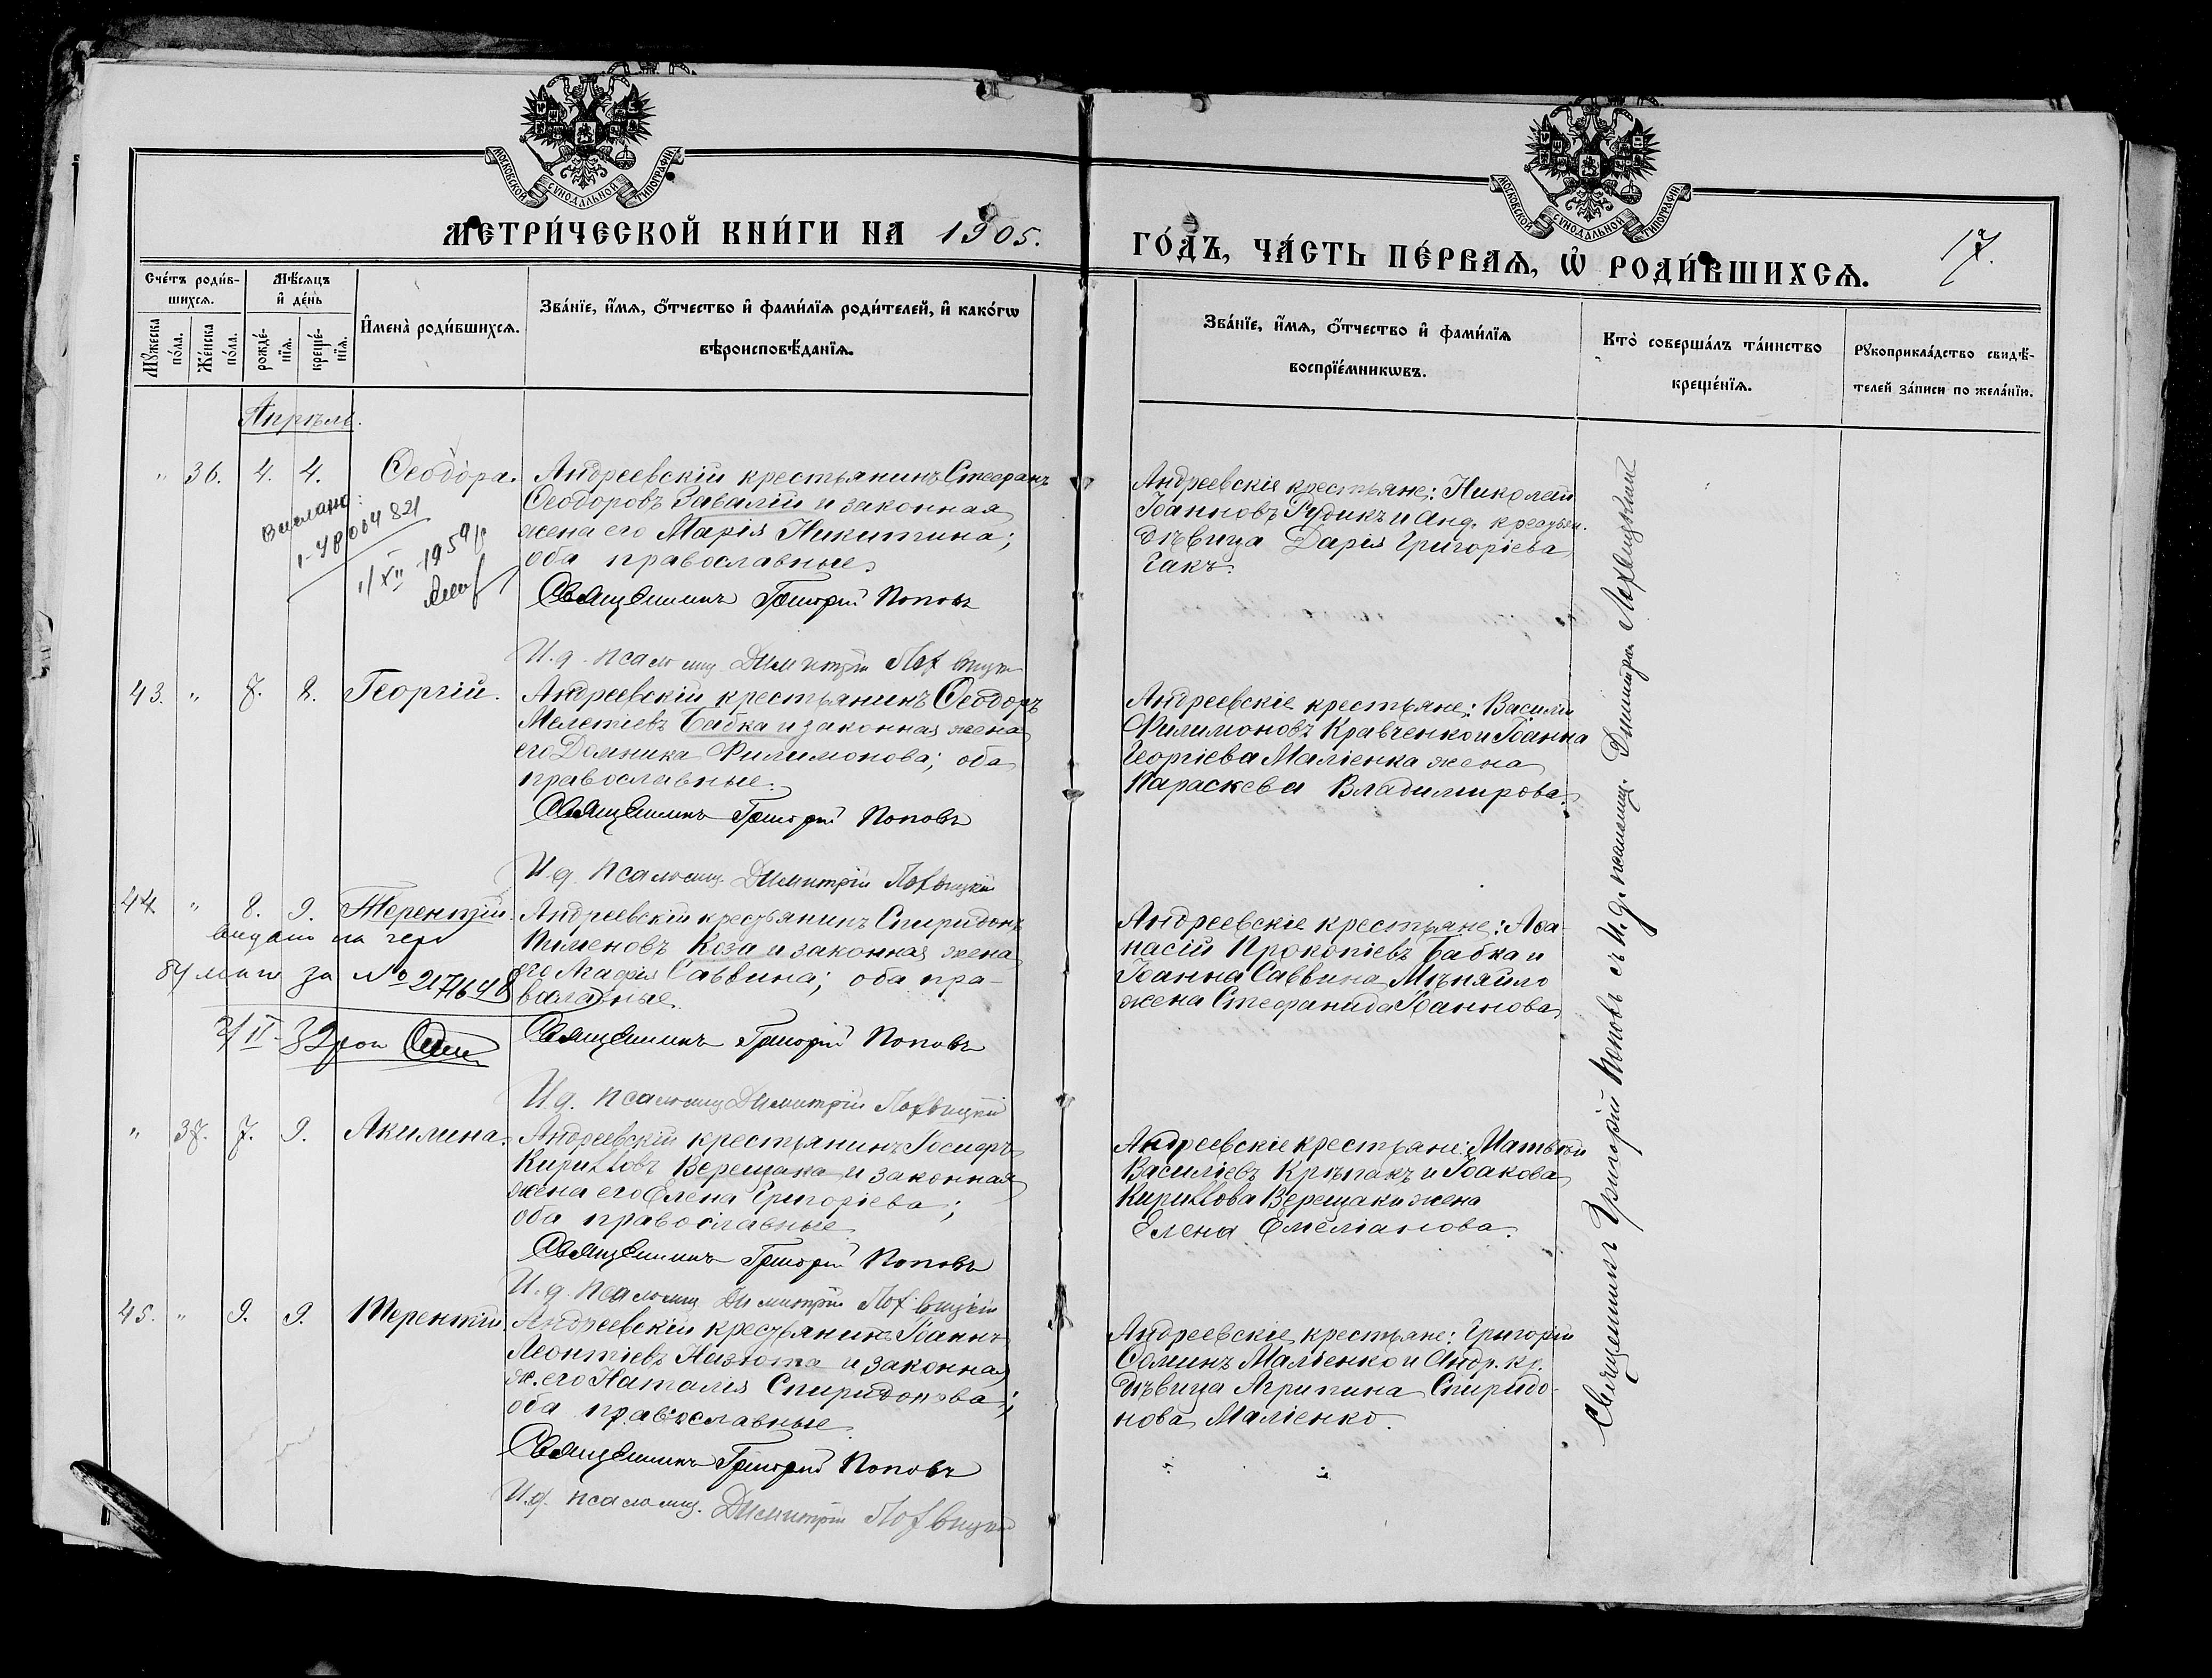 МОСКОВСКОЙ СУНОДАЛЬНОЙ ТИПОГРАФІИ
МОСКОВСКОЙ СУНОДАЛЬНОЙ ТИПОГРАФІИ
МЕТРИ́ЧЕСКОЙ КНИ́ГИ НА 1905.
ГО́ДЪ, ЧА́СТЬ ПЕ́РВАѦ, Ѡ҆ РОДИ́ВШИХСѦ.
17.
Сче́тъ роди́в-
шихсѧ.
Мꙋ́жеска
по́ла.
Же́нска
по́ла.
Мѣ́сѧцъ
и҆ де́нь
рожде́-
нїѧ.
креще́-
нїѧ.
И҆мена̀ роди́вшихсѧ.
Зва́нїе, и҆́мѧ, ѻ҆́тчество и҆ фами́лїѧ роди́телей, и҆ како́гѡ
вѣроисповѣ́данїѧ.
Зва́нїе, и҆́мѧ, ѻ҆́тчество и҆ фами́лїѧ
воспрїе́мникѡвъ.
Кто̀ соверша́лъ та́инство
креще́нїѧ.
Рꙋкоприкла́дство свидѣ́-
телей за́писи по жела́нїю.
Апрѣль.
" 36. 4. 4. Ѳеодора.
Андреевскій крестьянинъ Стефанъ
Ѳеодоровъ Завалій и законная
жена его Марія Никитина;
оба православные.
Священникъ Григорій Поповъ
И. д. псаломщ. Димитрій Лохвицкій
Андреевскіе крестьяне: Николай
Іоанновъ Рудикъ и Анд. крестьян.
дѣвица Дарія Григоріева
Гакъ.
Выслано:
1/XII 1959 р
43. " 7. 8. Георгій.
Андреевскій крестьянинъ Ѳеодоръ
Мелетіевъ Бабка и законная жена
его Домника Филимонова; оба
православные.
Священникъ Григорій Поповъ
И. д. псаломщ. Димитрій Лохвицкій
Андреевскіе крестьяне: Василій
Филимоновъ Кравченко и Іоанна
Георгіева Маліенка жена
Параскева Владимирова.
44. " 8. 9. Терентій.
Андреевскій крестьянинъ Спиридонъ
Пименовъ Коза и законная жена
его Марія Саввина; оба пра-
вославные.
Священникъ Григорій Поповъ
И. д. псаломщ. Димитрій Лохвицкій
за №
Андреевскіе крестьяне: Аѳа-
насій Прокопіевъ Бабка и
Іоанна Саввина Мѣняйло
жена Стефанида Іоаннова
" 37. 7. 9. Акилина.
Андреевскій крестьянинъ Іосифъ
Кирилловъ Верещака и законная
жена его Елена Григоріева;
оба православные
Священникъ Григорій Поповъ
И. д. псаломщ. Димитрій Лохвицкій
Андреевскіе крестьяне: Матвѣй
Василіевъ Крѣпакъ и Іоакова
Кириллова Верещаки жена
Елена Емеліанова.
45. " 9. 9. Терентій.
Андреевскій крестьянинъ Іоаннъ
Леонтіевъ и законная
ж. его Наталія Спиридонова;
оба православные
Священникъ Григорій Поповъ
И. д. псаломщ. Димитрій Лохвицкій
Андреевскіе крестьяне: Григорій
Маліенко и Андр. кр.
дѣвица Агрипина Спиридо-
нова Маліенко.
Священникъ Григорій Поповъ съ И. д. псаломщ. Димитріемъ Лохвицкимъ